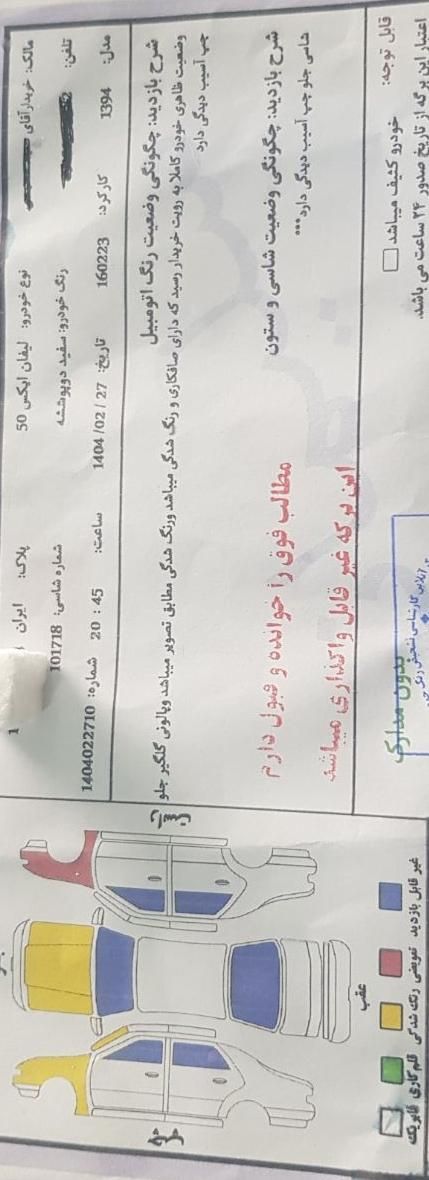 مالک: خریدار آقای
نوع خودرو: لیفان ایکس 50
پلاک: ایران 1
تلفن:
رنگ خودرو: سفید دوپوششه
شماره شاسی: 101718
مدل: 1394
کارکرد: 160223
تاریخ: 1404/02/27
ساعت: 20:45
شماره: 1404022710
شرح بازدید: چگونگی وضعیت رنگ اتومبیل
وضعیت ظاهری خودرو کاملا به رویت خریدار رسید که دارای صافکاری و رنگ شدگی میباشد ورنگ شدگی مطابق تصویر میباشد وپالونی گلگیر جلو
چپ آسیب دیدگی دارد
شرح بازدید: چگونگی وضعیت شاسی و ستون
شاسی جلو چپ آسیب دیدگی دارد***
مطالب فوق را خوانده و قبول دارم
این برگه غیر قابل واگذاری میباشد
قابل توجه:
خودرو کثیف میباشد
اعتبار این برگه از تاریخ صدور ۲۴ ساعت می باشد.
بدون مدارک
عقب
فابریک
قلم کاری
رنگ شدگی
تعویضی
غیر قابل بازدید